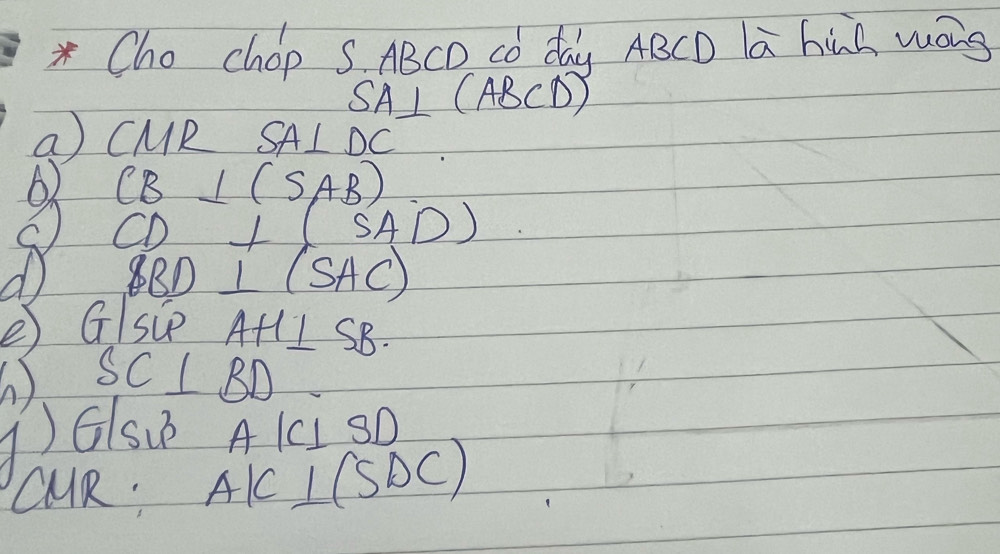 * Cho chóp S.ABCD có đáy ABCD là hình vuông
SA ⊥ (ABCD)
a) CMR SA ⊥ DC.
b) CB ⊥ (SAB)
c) CD ⊥ (SAD).
d) BD ⊥ (SAC)
e) G/sử AH ⊥ SB.
h) SC ⊥ BD.
g) G/sử AK ⊥ SD
CMR: AK ⊥ (SDC)